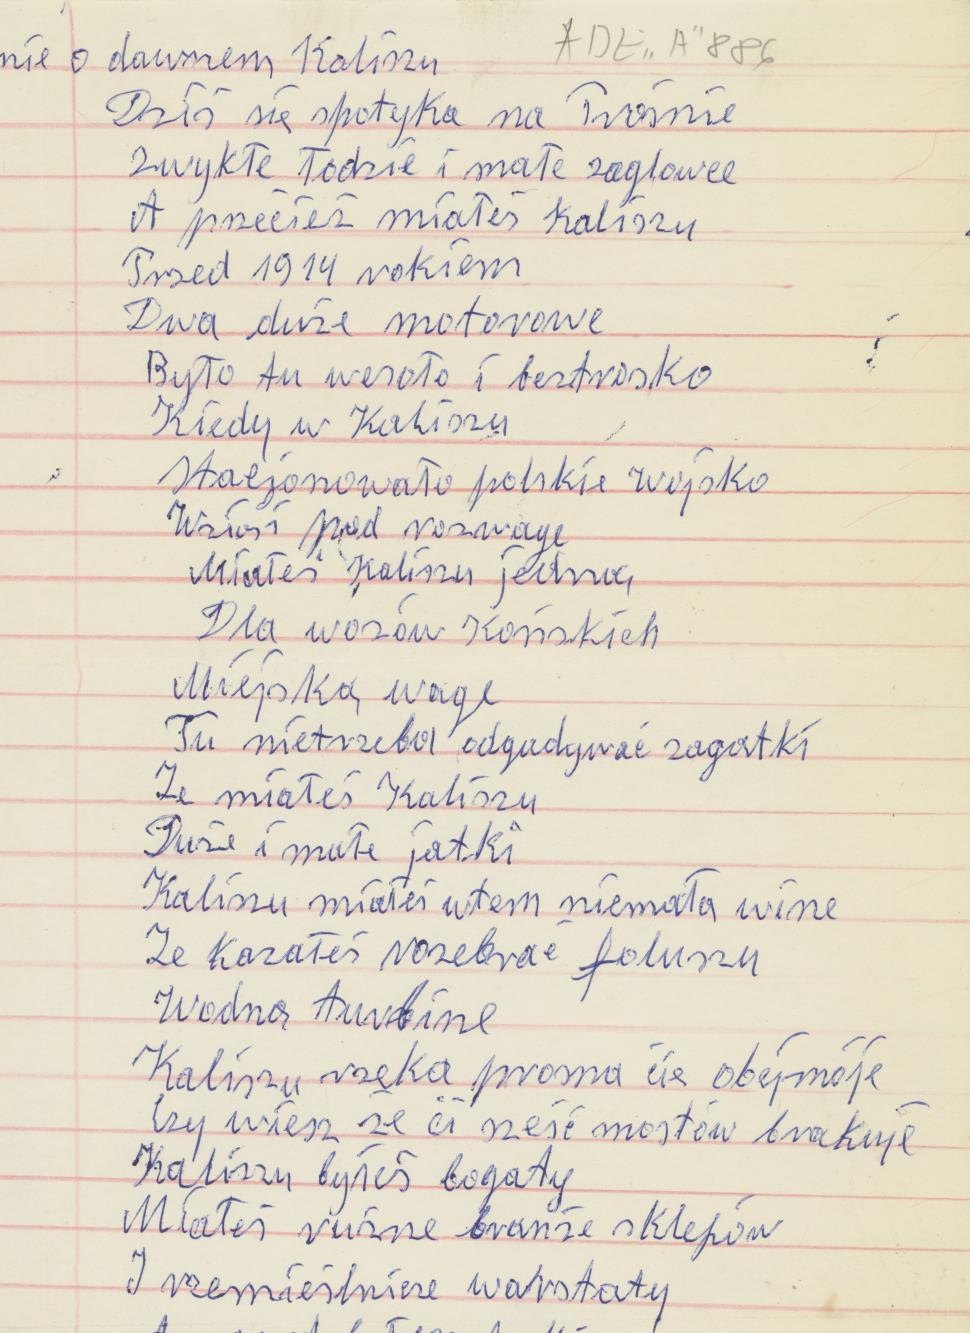 nie o dawnem Kaliszu
ADE „A" 886
Dziś się spotyka na Prośnie
Zwykłe łodzie i małe zaglowce
A przecież miałeś Kaliszu
Przed 1914 rokiem
Dwa duże motorowe
Było tu wesoło i beztrosko
Kiedy w Kaliszu
Stacjonowało polskie wojsko
Wziąś pod rozwagę
Miałeś Kaliszu jedną
Dla wozów Końskich
Miejską wagę
Tu nietrzeba odgadywać zagatki
Że miałeś Kaliszu
Duże i małe jatki
Kaliszu miałeś wtem niemała wine
Że kazałeś rozebrać foluszu
Wodną turbine
Kaliszu rzeka prosna cie obejmóje
Czy wiesz że ci sześć mostów brakuje
Kaliszu byłeś bogaty
Miałeś rużne branże sklepów
I rzemieślnicze warstaty